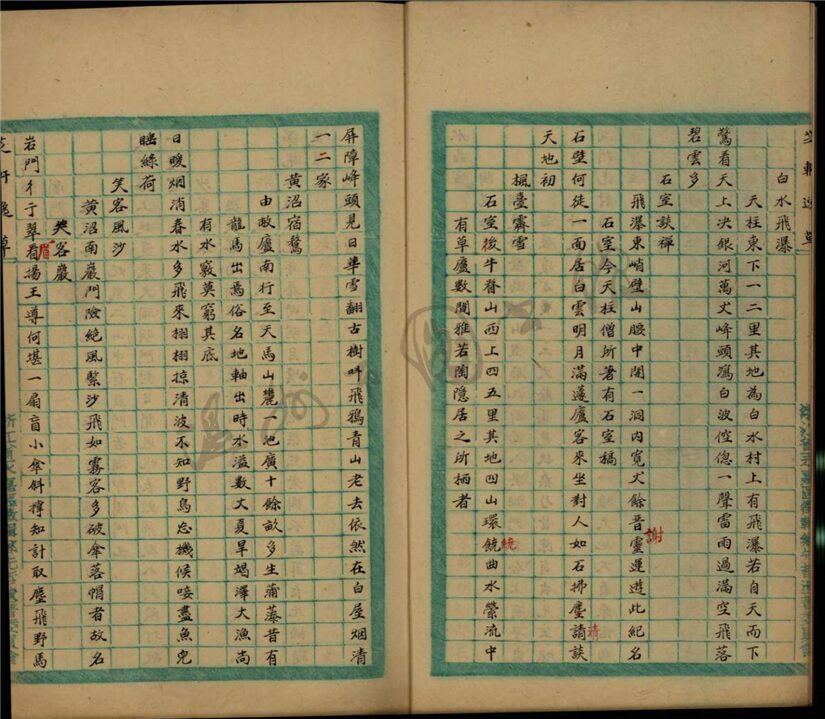 白水飛瀑
天柱東下一二里其地為白水村上有飛瀑若自天而下
驚看天上決銀河萬丈峰頭瀉白波倥傯一聲雷雨過滿空飛落
碧雲多
石室談禪
飛瀑東峭壁山腰中開一洞內寬丈餘晉靈運遊此紀名
謝
石室今天柱僧所著有石室稿
石壁何徒一面居白雲明月滿蘧廬客來坐對人如石拂塵請談
清
天地初
楓臺霽雪
石室後牛脊山西上四五里其地四山環饒曲水縈流中
繞
有草廬數間雅若陶隱居之所栖者
屏障峰頭見日華雪翻古樹呌飛鴉青山老去依然在白屋烟清
一二家
黄沼宿鶩
由敝廬南行至天馬山麓一池廣十餘畝多生蒲藻昔有
龍馬出焉俗名地軸出時水溢數丈夏旱竭澤大漁尚
有水竅莫窮其底
日暖烟消春水多飛來栩栩掠清波不知野鳥忘機候唼盡魚兒
眠綠荷
笑客風沙
黄沼南巖門險絶風緊沙飛如霧客多破傘落帽者故名
笑客巖
岩門彳亍翠看揚王導何堪一扇盲小傘斜撑知計取塵飛野馬
眉